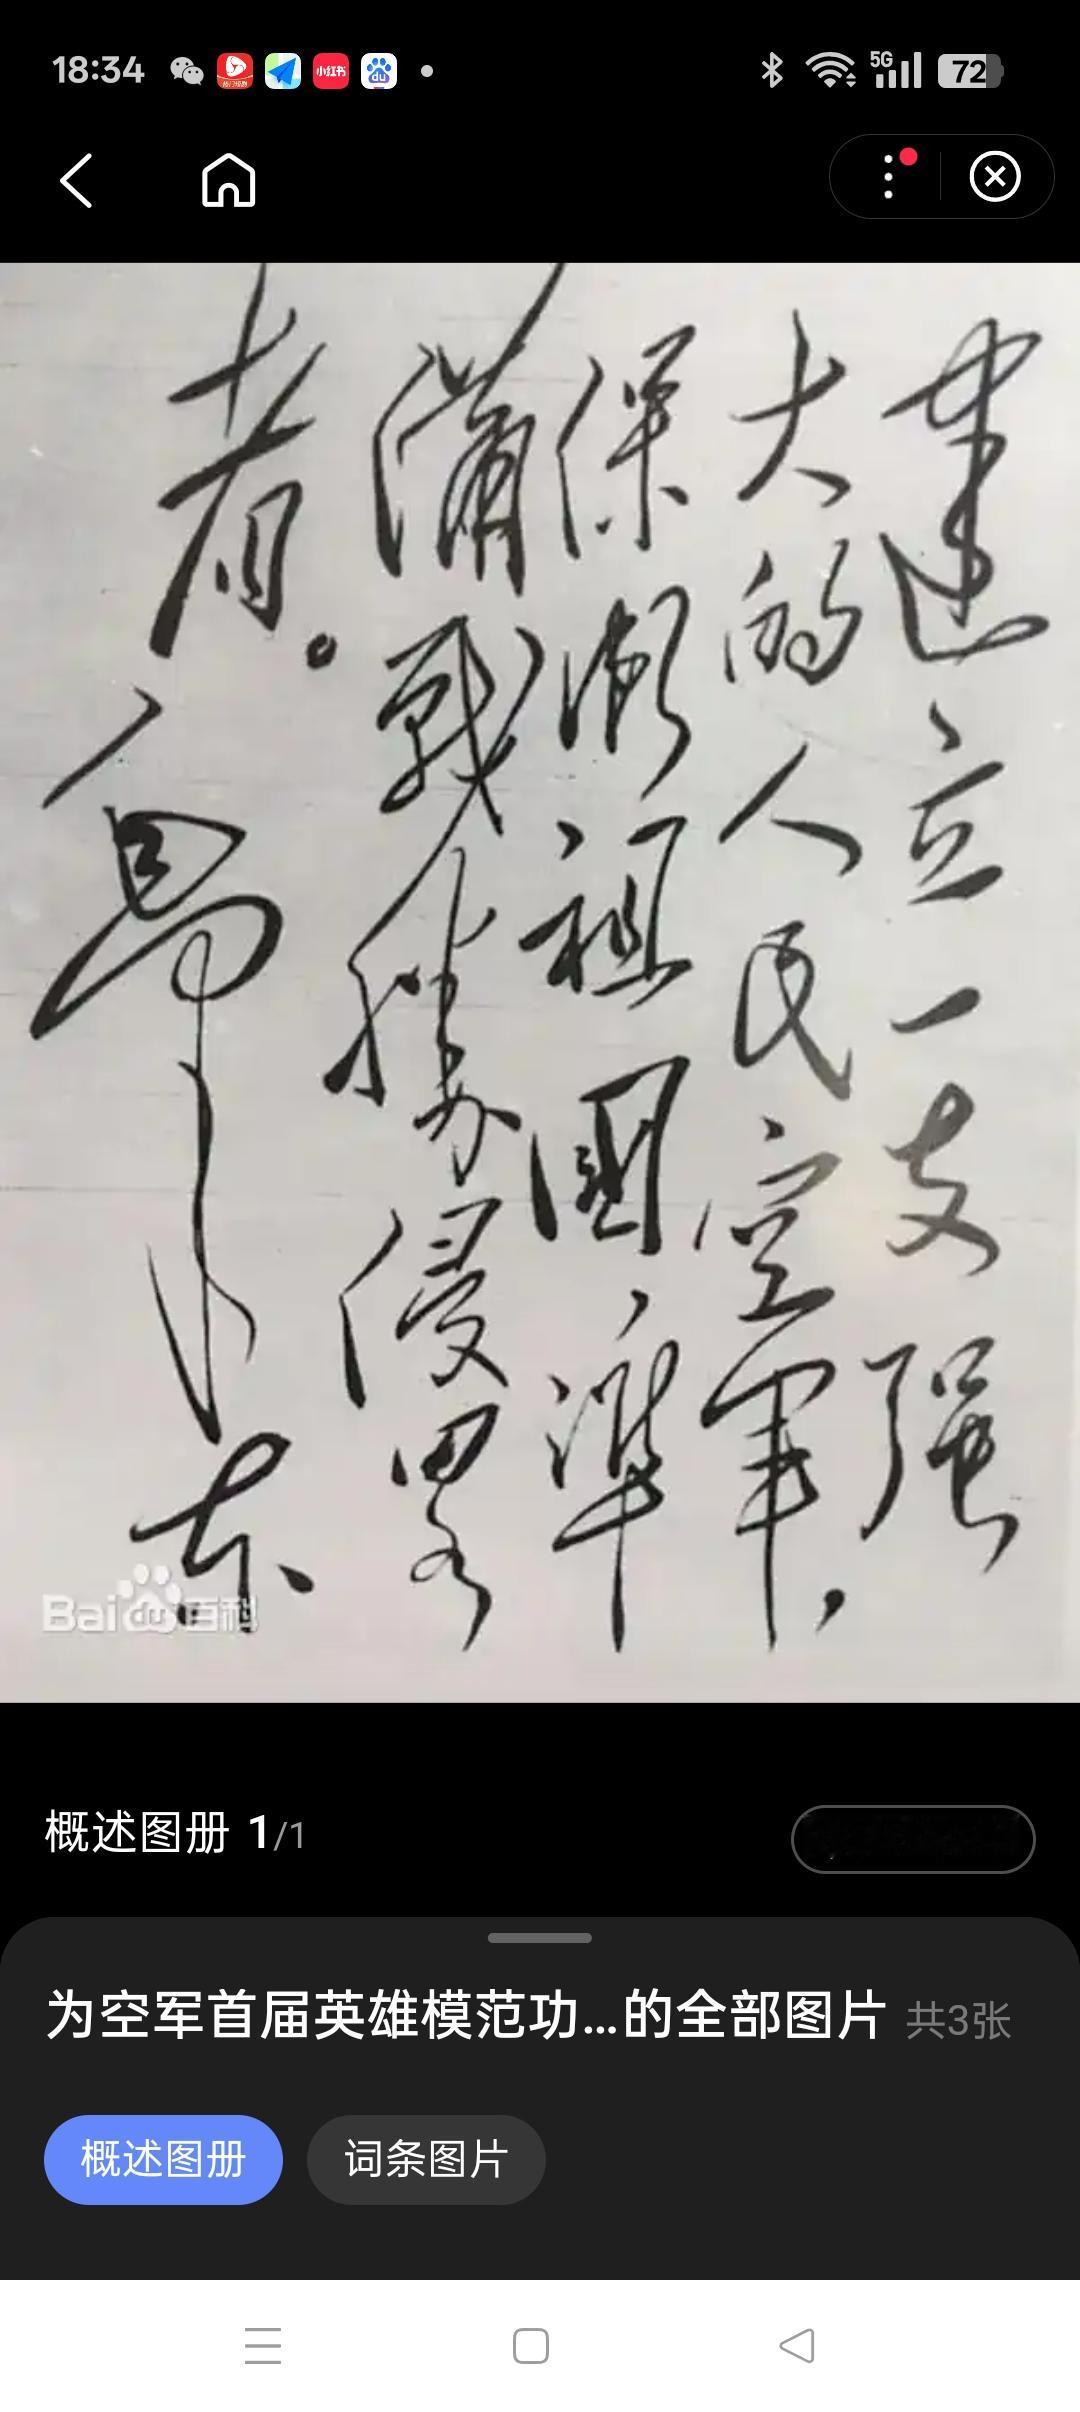 18:34
小红书
du
5G
72
建立一支强
大的人民空軍，
保衛祖國，準
備戰勝侵略
者。
毛澤东
Baidu百科
概述图册 1/1
为空军首届英雄模范功...的全部图片 共3张
概述图册
词条图片